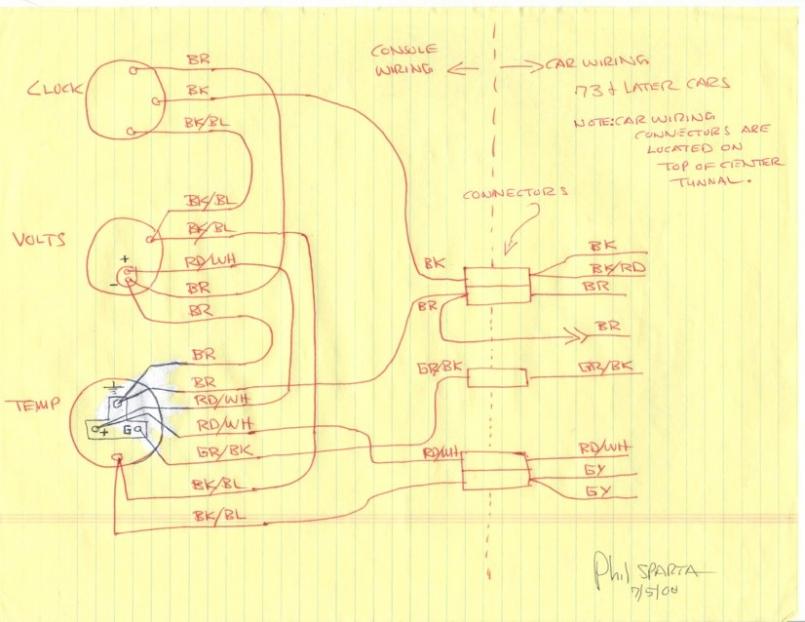 CONSOLE
WIRING
CAR WIRING
73 & LATER CARS
NOTE: CAR WIRING
CONNECTORS ARE
LOCATED ON
TOP OF CENTER
TUNNAL.
CONNECTORS
CLOCK
BR
BK
BK/BL
VOLTS
BK/BL
BK/BL
+
RD/WH
-
BR
BR
TEMP
BR
BR
RD/WH
+ G
RD/WH
GR/BK
BK/BL
BK/BL
BK
BR
GR/BK
RD/WH
BK
BK/RD
BR
BR
GR/BK
RD/WH
GY
GY
Phil SPARTA